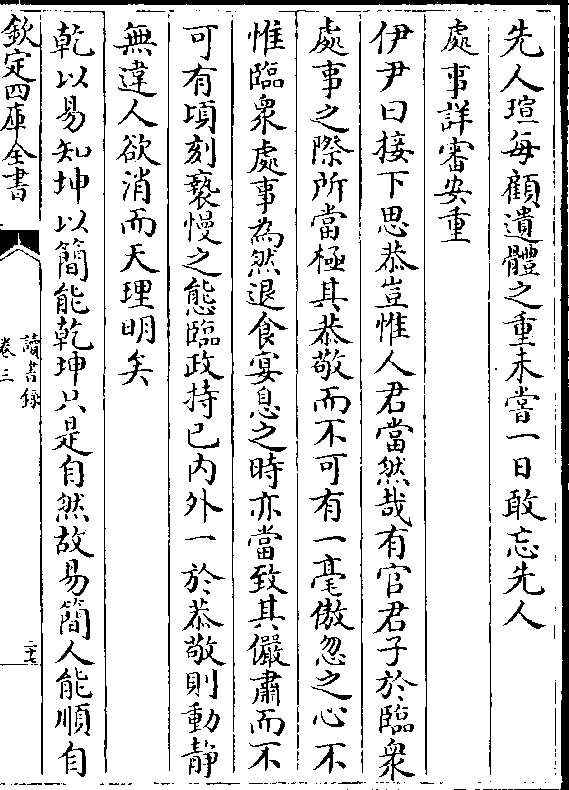 先人瑄每顧遺體之重未嘗一日敢忘先人
處事詳審安重
伊尹曰接下思恭豈惟人君當然哉有官君子於臨衆
處事之際所當極其恭敬而不可有一毫傲忽之心不
惟臨衆處事為然退食宴息之時亦當致其儼肅而不
可有頃刻褻慢之態臨政持己内外一於恭敬則動静
無違人欲消而天理明矣
乾以易知坤以簡能乾坤只是自然故易簡人能順自
欽定四庫全書
讀書録
卷三
二十七